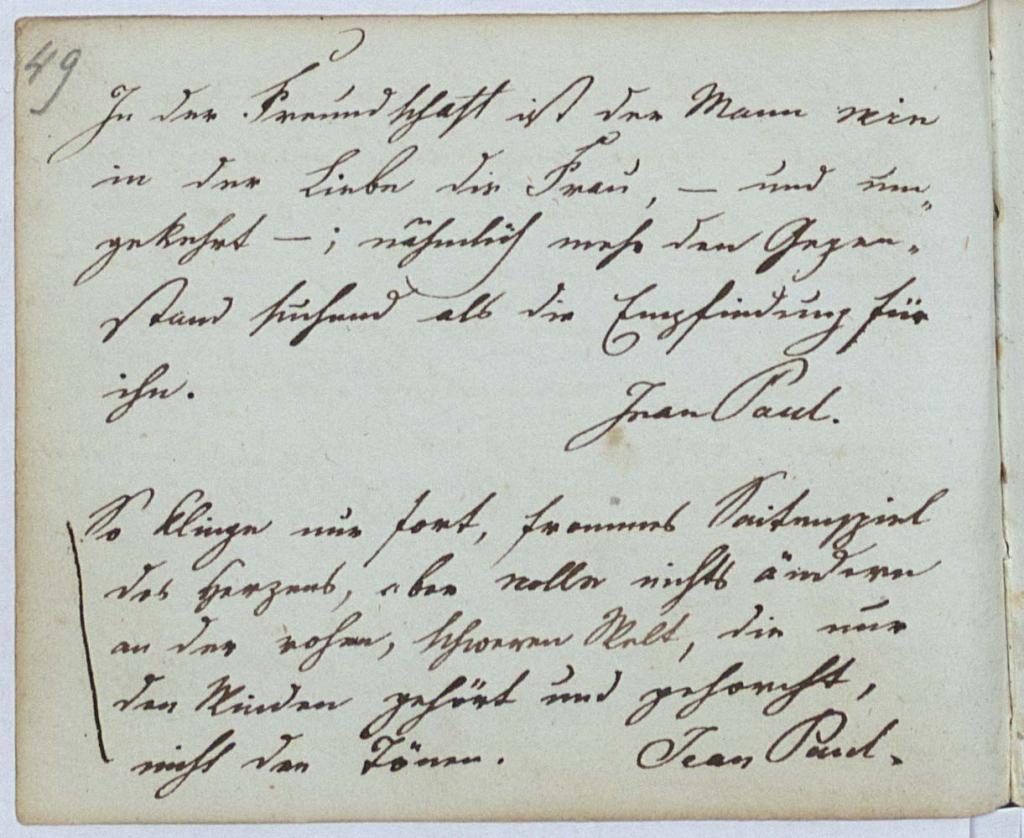 49
In der Freundschaft ist der Mann wie
in der Liebe die Frau, — und um„
gekehrt — ; nähmlich mehr den Gegen„
stand suchend als die Empfindung für
ihn.
Jean Paul.
So klinge nur fort, frommes Saitenspiel
des Herzens, aber wolle nichts ändern
an der rohen, schweren Welt, die nur
den Winden gehört und gehorcht,
nicht den Tönen.
Jean Paul.